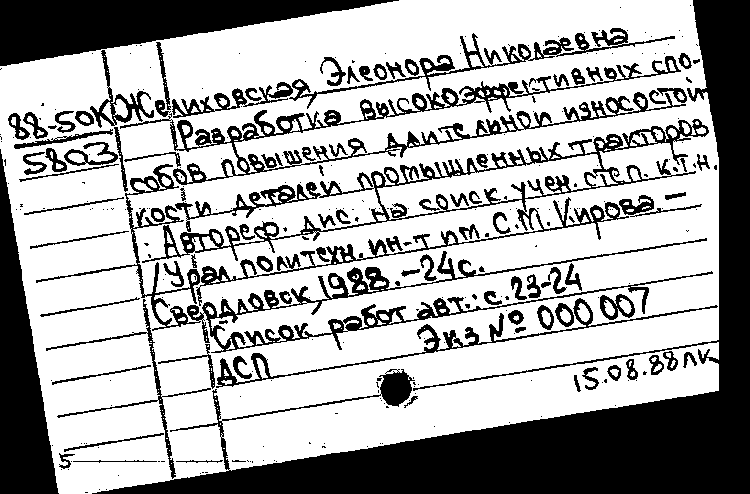 88-50К
5803
Желиховская, Элеонора Николаевна
Разработка высокоэффективных спо-
собов повышения длительной износостой-
кости деталей промышленных тракторов
: Автореф. дис. на соиск. учен. степ. к.т.н.
/Урал. политехн. ин-т им. С.М. Кирова. —
Свердловск, 1988. – 24с.
Список работ авт.: с. 23-24
ДСП Экз № 000 007
15.08.88 ЛК
5